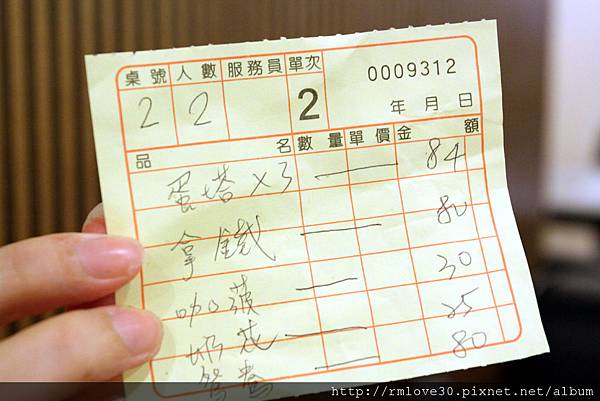 桌號 人數 服務員 單次
2 2 2
0009312
年 月 日
品名 數量 單價 金額
蛋塔 x3 84
拿鐵 80
咖菠 30
奶 25
80
http://rmlove30.pixnet.net/album